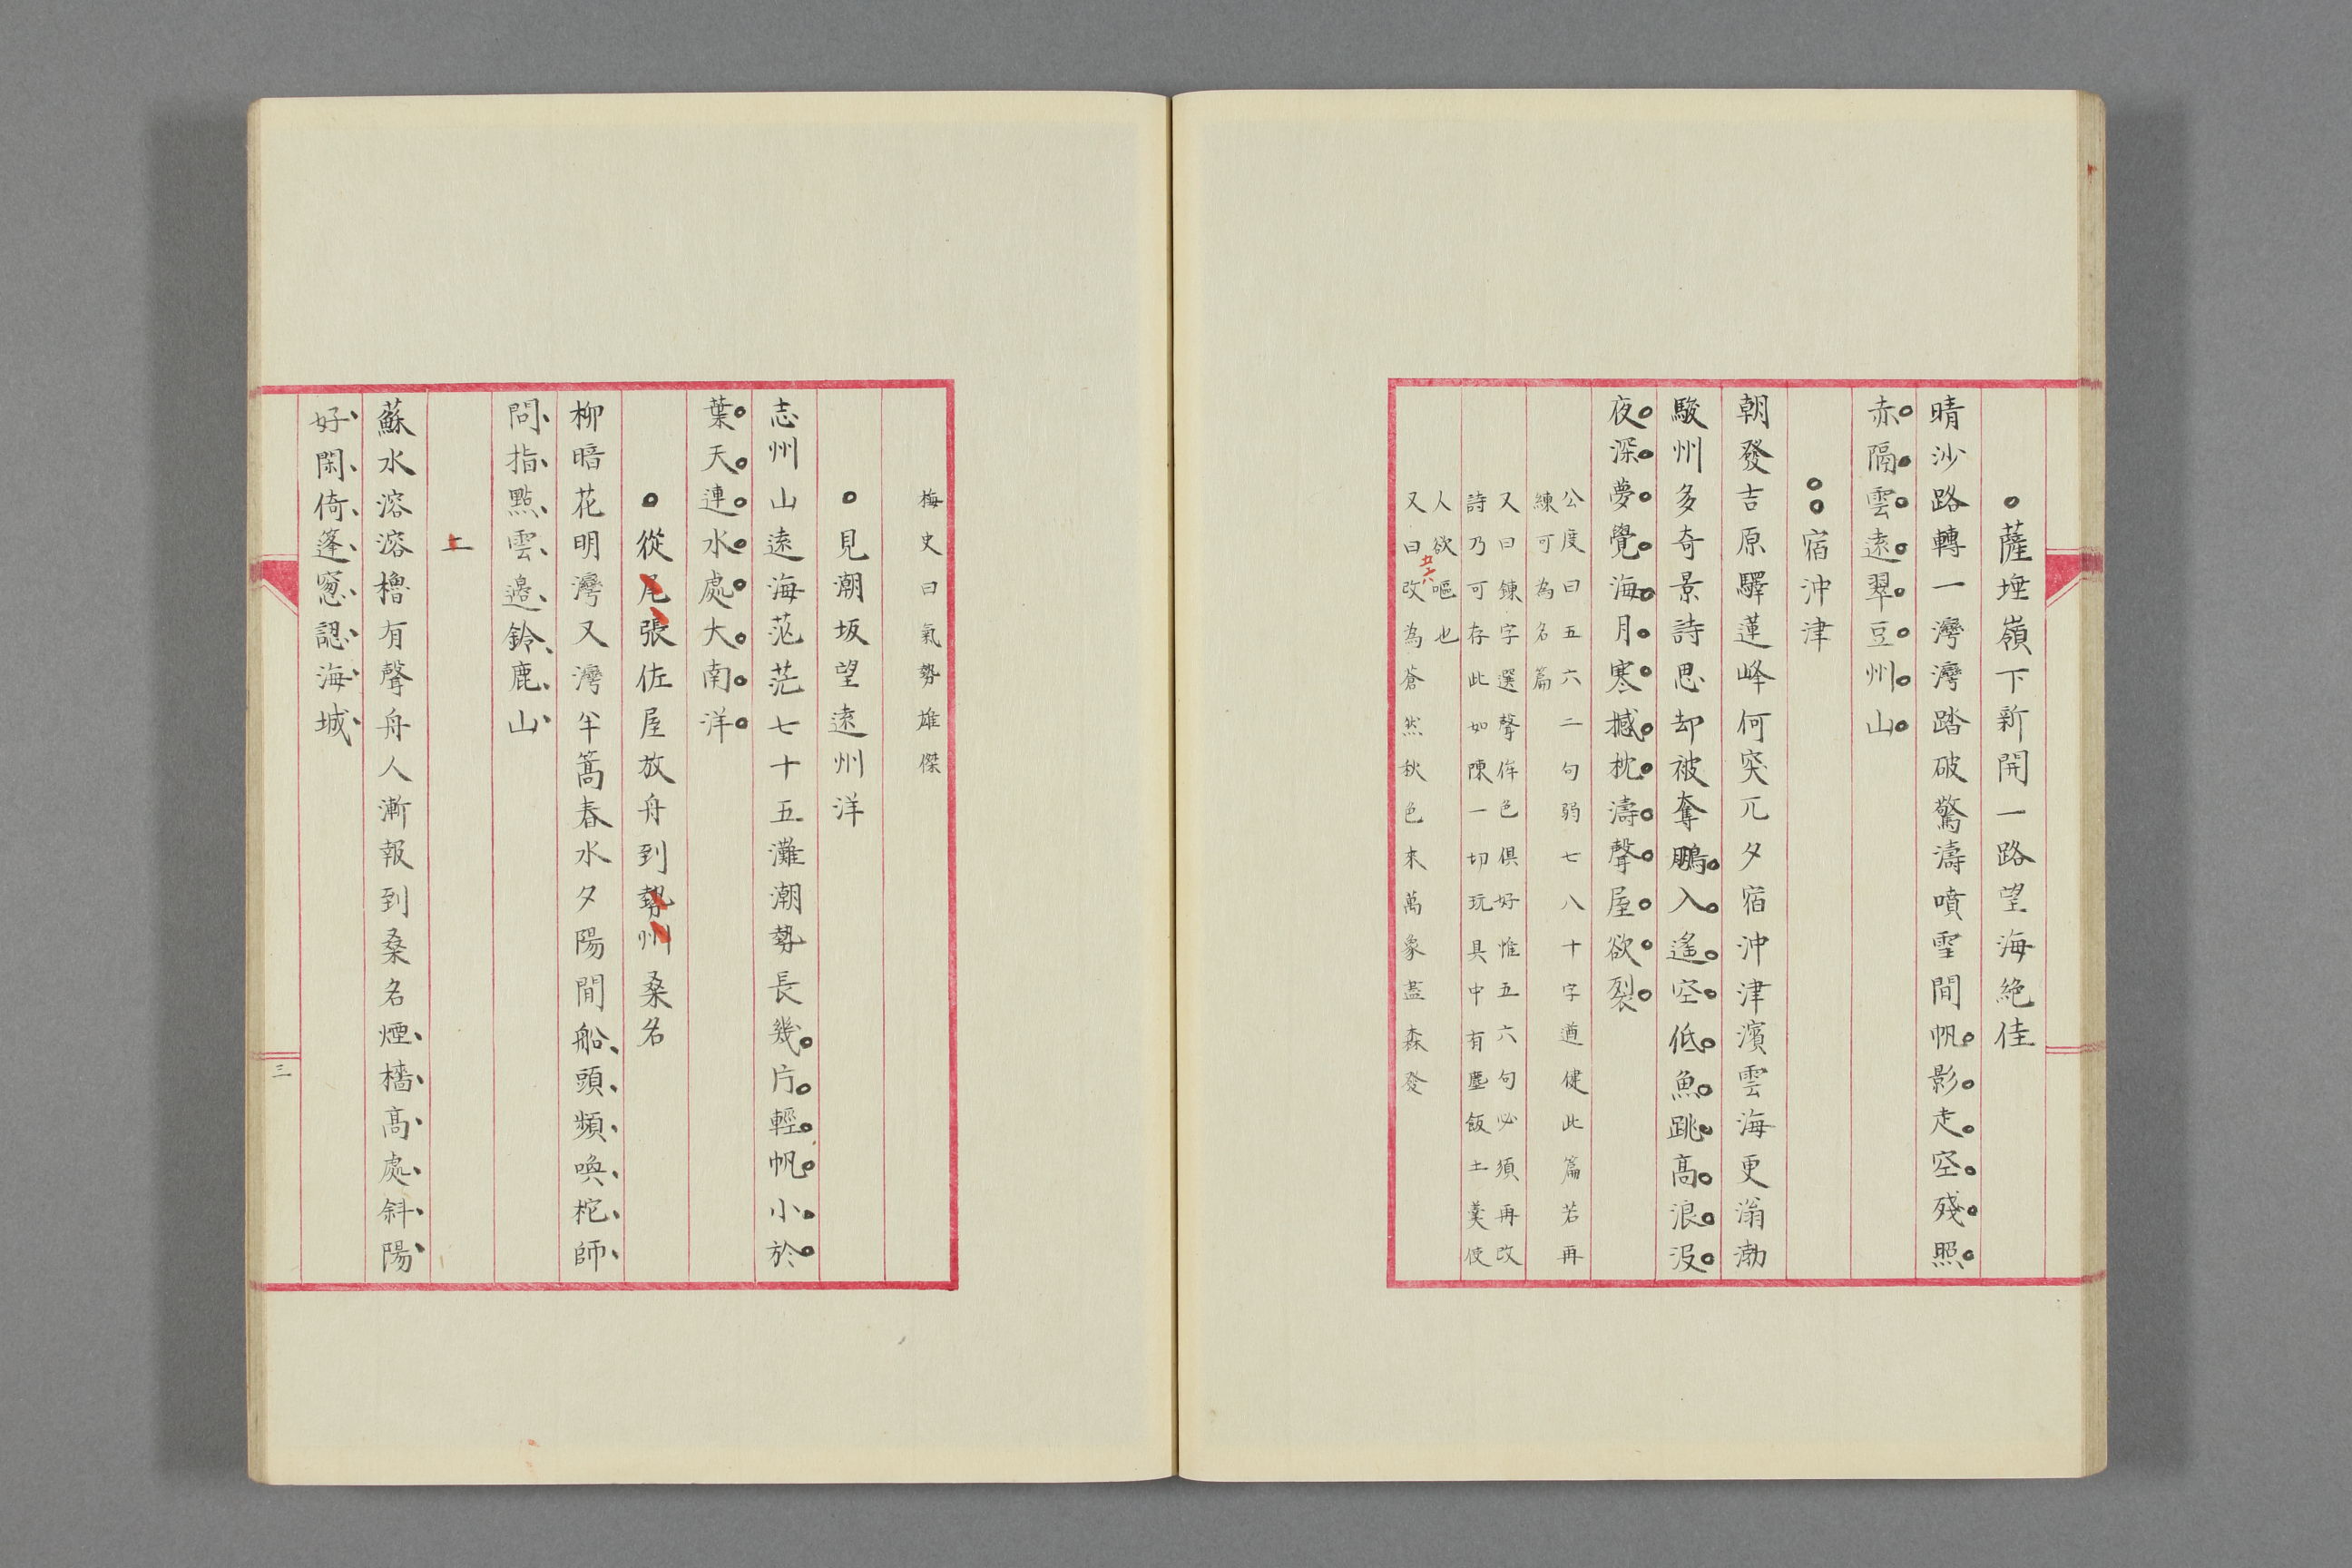 薩埵嶺下新開一路望海絕佳
晴沙路轉一灣灣踏破驚濤噴雪間帆影走空殘照
赤隔雲遠翠豆州山
宿沖津
朝發吉原驛蓮峰何突兀夕宿沖津濱雲海更滃渤
駿州多奇景詩思却被奪鵬入遙空低魚跳高浪沒
夜深夢覺海月寒撼枕濤聲屋欲裂
公度曰五六二句弱七八十字遒健此篇若再
練可為名篇
又曰鍊字選聲侔色俱好惟五六句必須再改
詩乃可存此如陳一切玩具中有塵飯土羹使
人欲嘔也
又曰五六改為蒼然秋色來萬象盡森發
梅史曰氣勢雄傑
見潮坂望遠州洋
志州山遠海茫茫七十五灘潮勢長幾片輕帆小於
葉天連水處大南洋
從尾張佐屋放舟到勢州桑名
柳暗花明灣又灣半篙春水夕陽間船頭頻喚柁師
問指點雲邊鈴鹿山
二
蘇水溶溶櫓有聲舟人漸報到桑名煙檣高處斜陽
好閑倚篷窓認海城
三